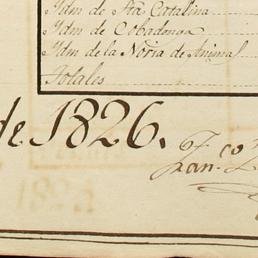 Ydm de Sta Catalina
Ydm de Cobadonga
Ydm de la Noria de Animal
Totales
de 1826.
Fco
Zan.